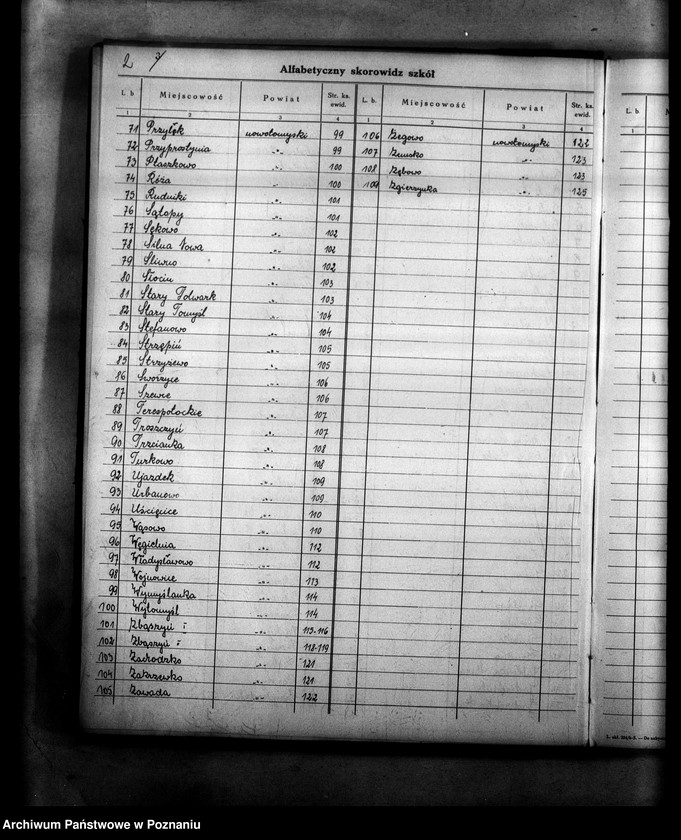 2 3/
Alfabetyczny skorowidz szkół
L. b. Miejscowość Powiat Str. ks. ewid. L. b. Miejscowość Powiat Str. ks. ewid.
1 2 3 4 1 2 3 4
71 Przyłęk nowotomyski 99 106 Zegowo nowotomyski 122
72 Przyprostynia -„- 99 107 Zemsko -„- 123
73 Ptaszkowo -„- 100 108 Zębowo -„- 123
74 Róża -„- 100 109 Zgierzynka -„- 125
75 Rudniki -„- 101
76 Sątopy -„- 101
77 Sękowo -„- 102
78 Silna Nowa -„- 102
79 Sliwno -„- 102
80 -„- 103
81 Stary Folwark -„- 103
82 Stary Tomyśl -„- 104
83 Stefanowo -„- 104
84 Strzępiń -„- 105
85 Strzyżewo -„- 105
86 Sworzyce -„- 106
87 Szewce -„- 106
88 Terespotockie -„- 107
89 Troszczyń -„- 107
90 Trzcianka -„- 108
91 Turkowo -„- 108
92 Ujazdek -„- 109
93 Urbanowo -„- 109
94 Uścięcice -„- 110
95 Wąsowo -„- 110
96 Węgielnia -„- 112
97 Władysławowo -„- 112
98 Wojnowice -„- 113
99 Wymyślanka -„- 114
100 Wytomyśl -„- 114
101 Zbąszyń I -„- 115-116
102 Zbąszyń -„- 118-119
103 Zachodzko -„- 121
104 Zakrzewko -„- 121
105 Zawada -„- 122
Archiwum Państwowe w Poznaniu